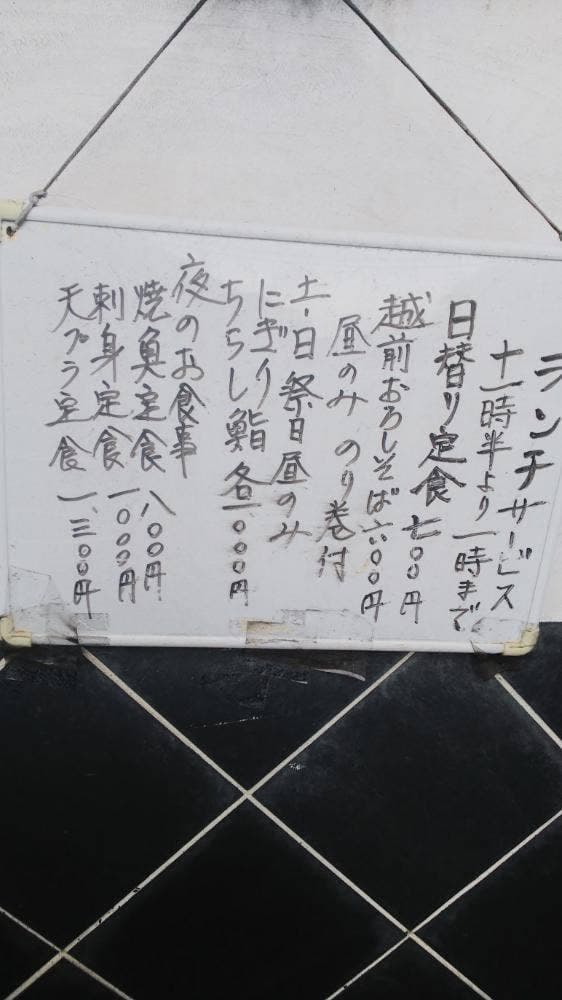 ランチサービス
十一時半より一時まで
日替り定食 七〇〇円
越前おろしそば 六〇〇円
昼のみ のり巻付
土・日祭日昼のみ
にぎり鮨
ちらし鮨 各一、〇〇〇円
夜のお食事
焼魚定食 八〇〇円
刺身定食 一、〇〇〇円
天プラ定食 一、三〇〇円